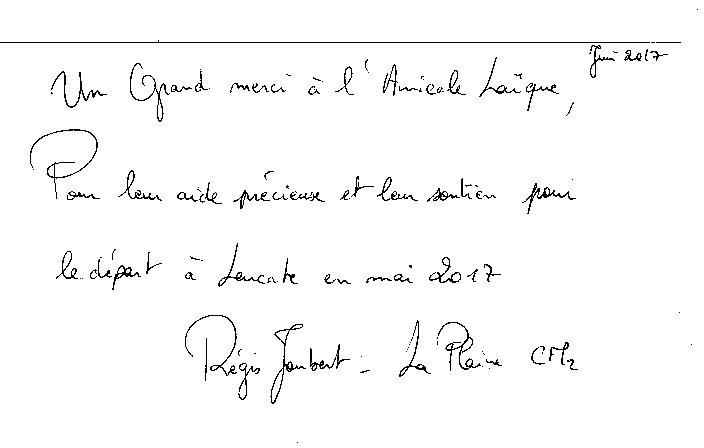 Juin 2017
Un Grand merci à l'Amicale Laïque,
Pour leur aide précieuse et leur soutien pour
le départ à Leucate en mai 2017
Régis Joubert - La Plaine CM2